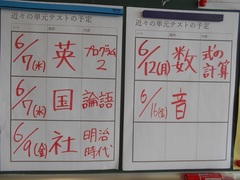 近々の単元テストの予定
6/7(水) 英 プログラム2
6/7(水) 国 論語
6/9(金) 社 明治時代
近々の単元テストの予定
6/12(月) 数 式の計算
6/16(金) 音